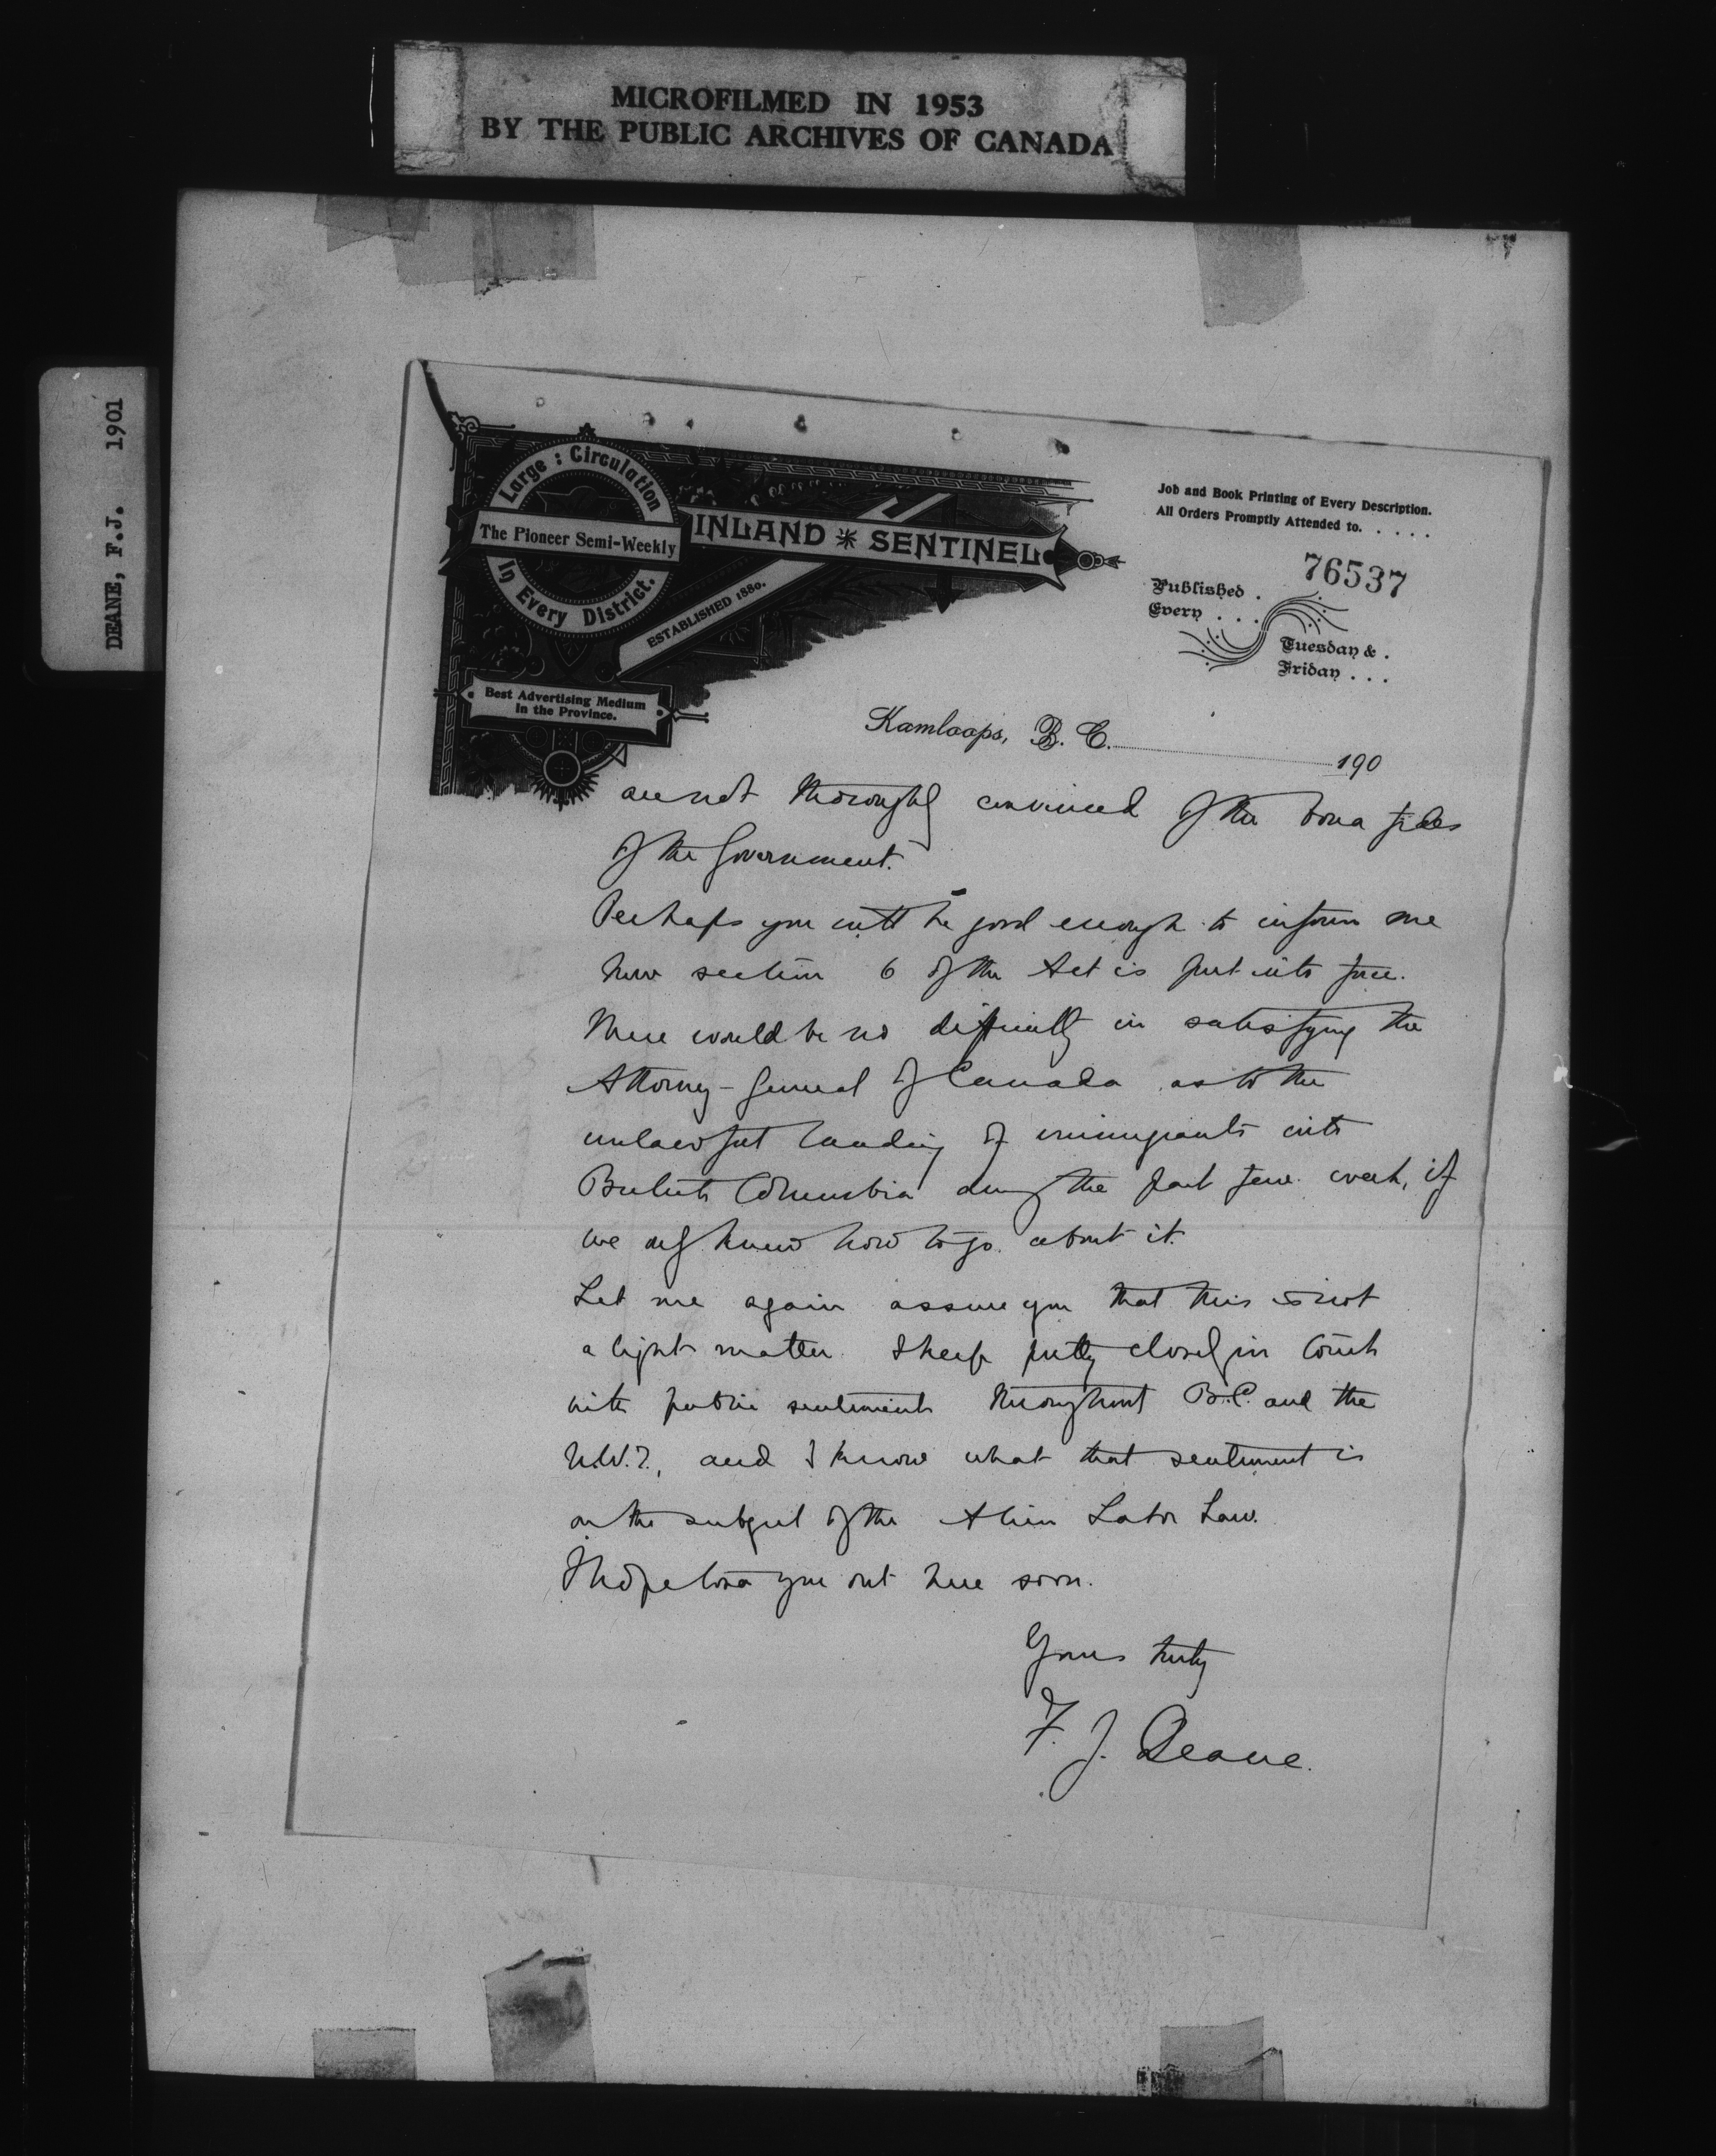 MICROFILMED IN 1953
BY THE PUBLIC ARCHIVES OF CANADA
DEANE, F.J. 1901
Large : Circulation
The Pioneer Semi-Weekly
In Every District.
INLAND SENTINEL
ESTABLISHED 1880.
Best Advertising Medium
in the Province.
Job and Book Printing of Every Description.
All Orders Promptly Attended to. . . . .
76537
Published .
Every . . .
Tuesday & .
Friday . . .
Kamloops, B. C. 190
are not thoroughly convinced of the bona fides
of the Government.
Perhaps you will be good enough to inform me
how section 6 of the Act is put into force.
There would be no difficulty in satisfying the
Attorney-General of Canada as to the
unlawful landing of immigrants into
British Columbia during the past few weeks, if
we only knew how to go about it.
Let me again assure you that this is not
a light matter. I keep pretty closely in touch
with public sentiment throughout B.C. and the
N.W.T., and I know what that sentiment is
on the subject of the Alien Labor Law.
I hope to see you out here soon.
Yours truly
F. J. Deane.